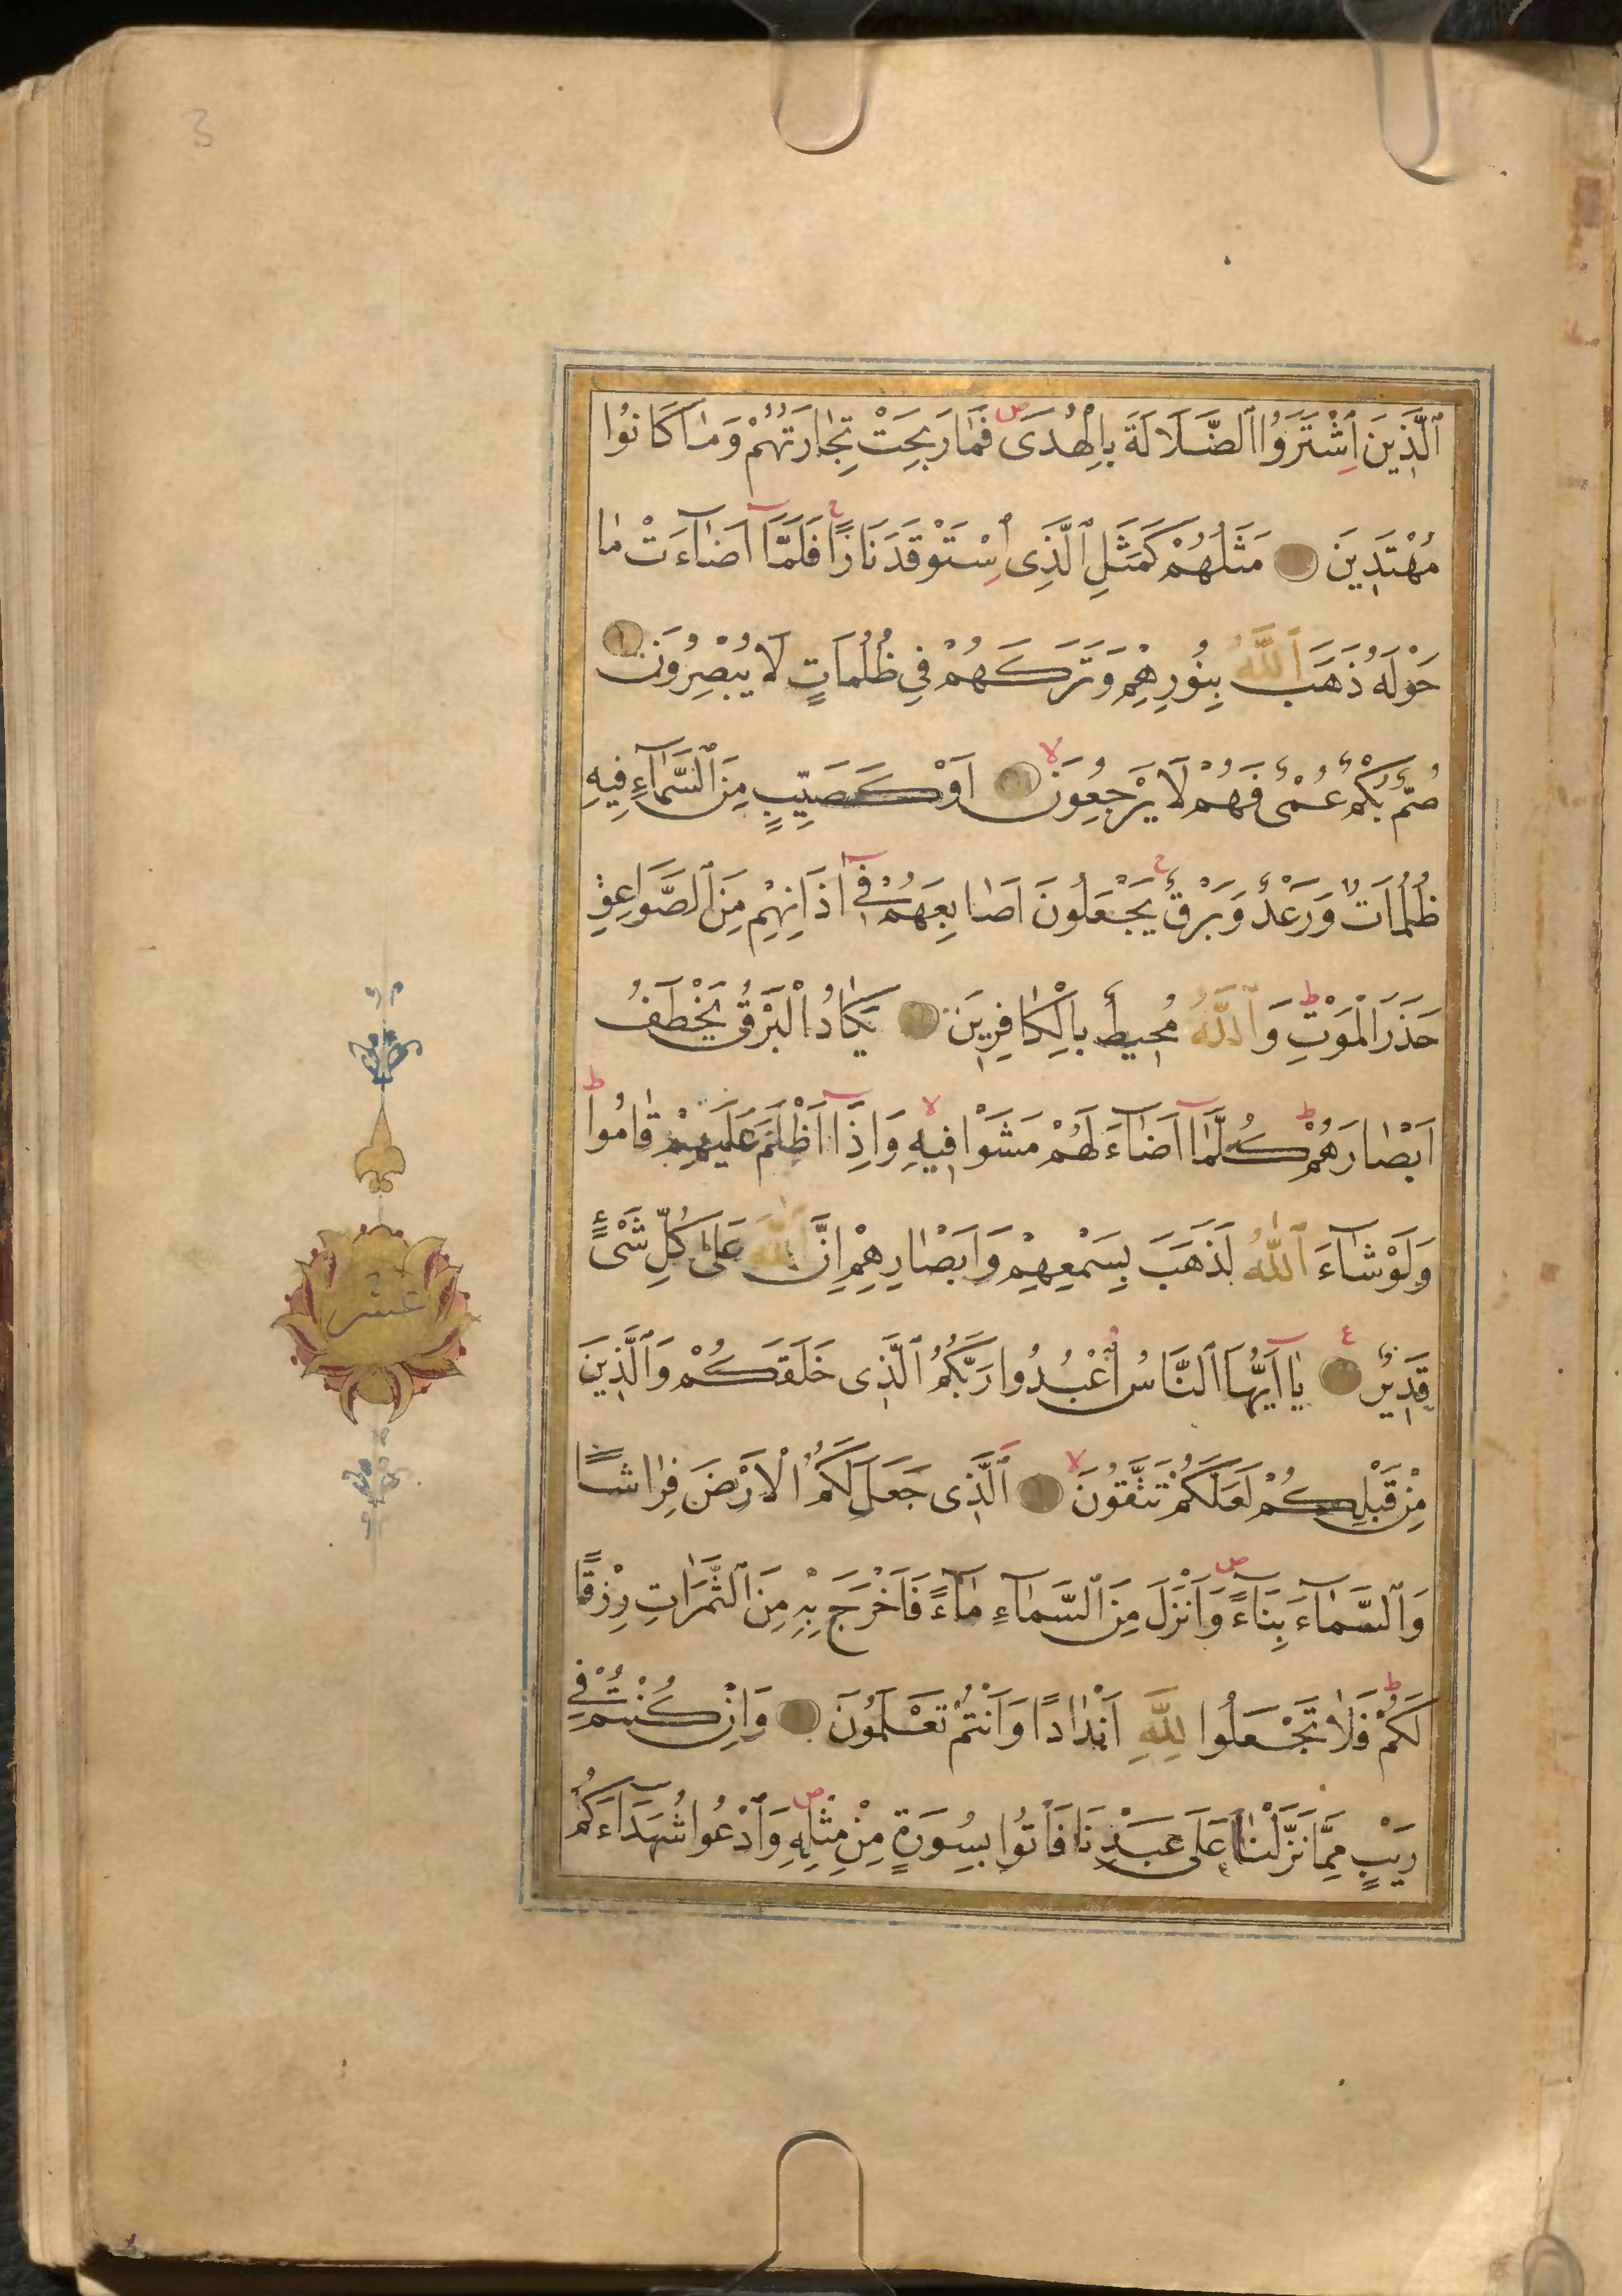 3
ٱلَّذِينَ ٱشْتَرَوُا ٱلضَّلَالَةَ بِالْهُدَى فَمَا رَبِحَتْ تِجَارَتُهُمْ وَمَا كَانُوا
مُهْتَدِينَ مَثَلُهُمْ كَمَثَلِ ٱلَّذِى ٱسْتَوْقَدَ نَارًا فَلَمَّآ اَضَآءَتْ مَا
حَوْلَهُ ذَهَبَ ٱللَّهُ بِنُورِهِمْ وَتَرَكَهُمْ فِي ظُلُمَاتٍ لَا يُبْصِرُونَ
صُمٌّ بُكْمٌ عُمْىٌ فَهُمْ لَا يَرْجِعُونَ اَوْ كَصَيِّبٍ مِنَ ٱلسَّمَآءِ فِيهِ
ظُلُمَاتٌ وَرَعْدٌ وَبَرْقٌ يَجْعَلُونَ اَصَابِعَهُمْ فِىٓ اٰذَانِهِمْ مِنَ ٱلصَّوَاعِقِ
حَذَرَ الْمَوْتِ وَٱللَّهُ مُحِيطٌ بِالْكَافِرِينَ يَكَادُ الْبَرْقُ يَخْطَفُ
اَبْصَارَهُمْ كُلَّمَآ اَضَآءَ لَهُمْ مَشَوْا فِيهِ وَاِذَآ اَظْلَمَ عَلَيْهِمْ قَامُوا
وَلَوْ شَآءَ ٱللَّهُ لَذَهَبَ بِسَمْعِهِمْ وَاَبْصَارِهِمْ اِنَّ ٱللَّهَ عَلَى كُلِّ شَىْءٍ
قَدِيرٌ يَآ اَيُّهَا ٱلنَّاسُ ٱعْبُدُوا رَبَّكُمُ ٱلَّذِى خَلَقَكُمْ وَٱلَّذِينَ
مِنْ قَبْلِكُمْ لَعَلَّكُمْ تَتَّقُونَ ٱلَّذِى جَعَلَ لَكُمُ الْاَرْضَ فِرَاشًا
وَٱلسَّمَآءَ بِنَآءً وَاَنْزَلَ مِنَ ٱلسَّمَآءِ مَآءً فَاَخْرَجَ بِهِ مِنَ ٱلثَّمَرَاتِ رِزْقًا
لَكُمْ فَلَا تَجْعَلُوا لِلَّهِ اَنْدَادًا وَاَنْتُمْ تَعْلَمُونَ وَاِنْ كُنْتُمْ فِي
رَيْبٍ مِمَّا نَزَّلْنَا عَلَى عَبْدِنَا فَأْتُوا بِسُورَةٍ مِنْ مِثْلِهِ وَٱدْعُوا شُهَدَآءَكُمْ
عشر